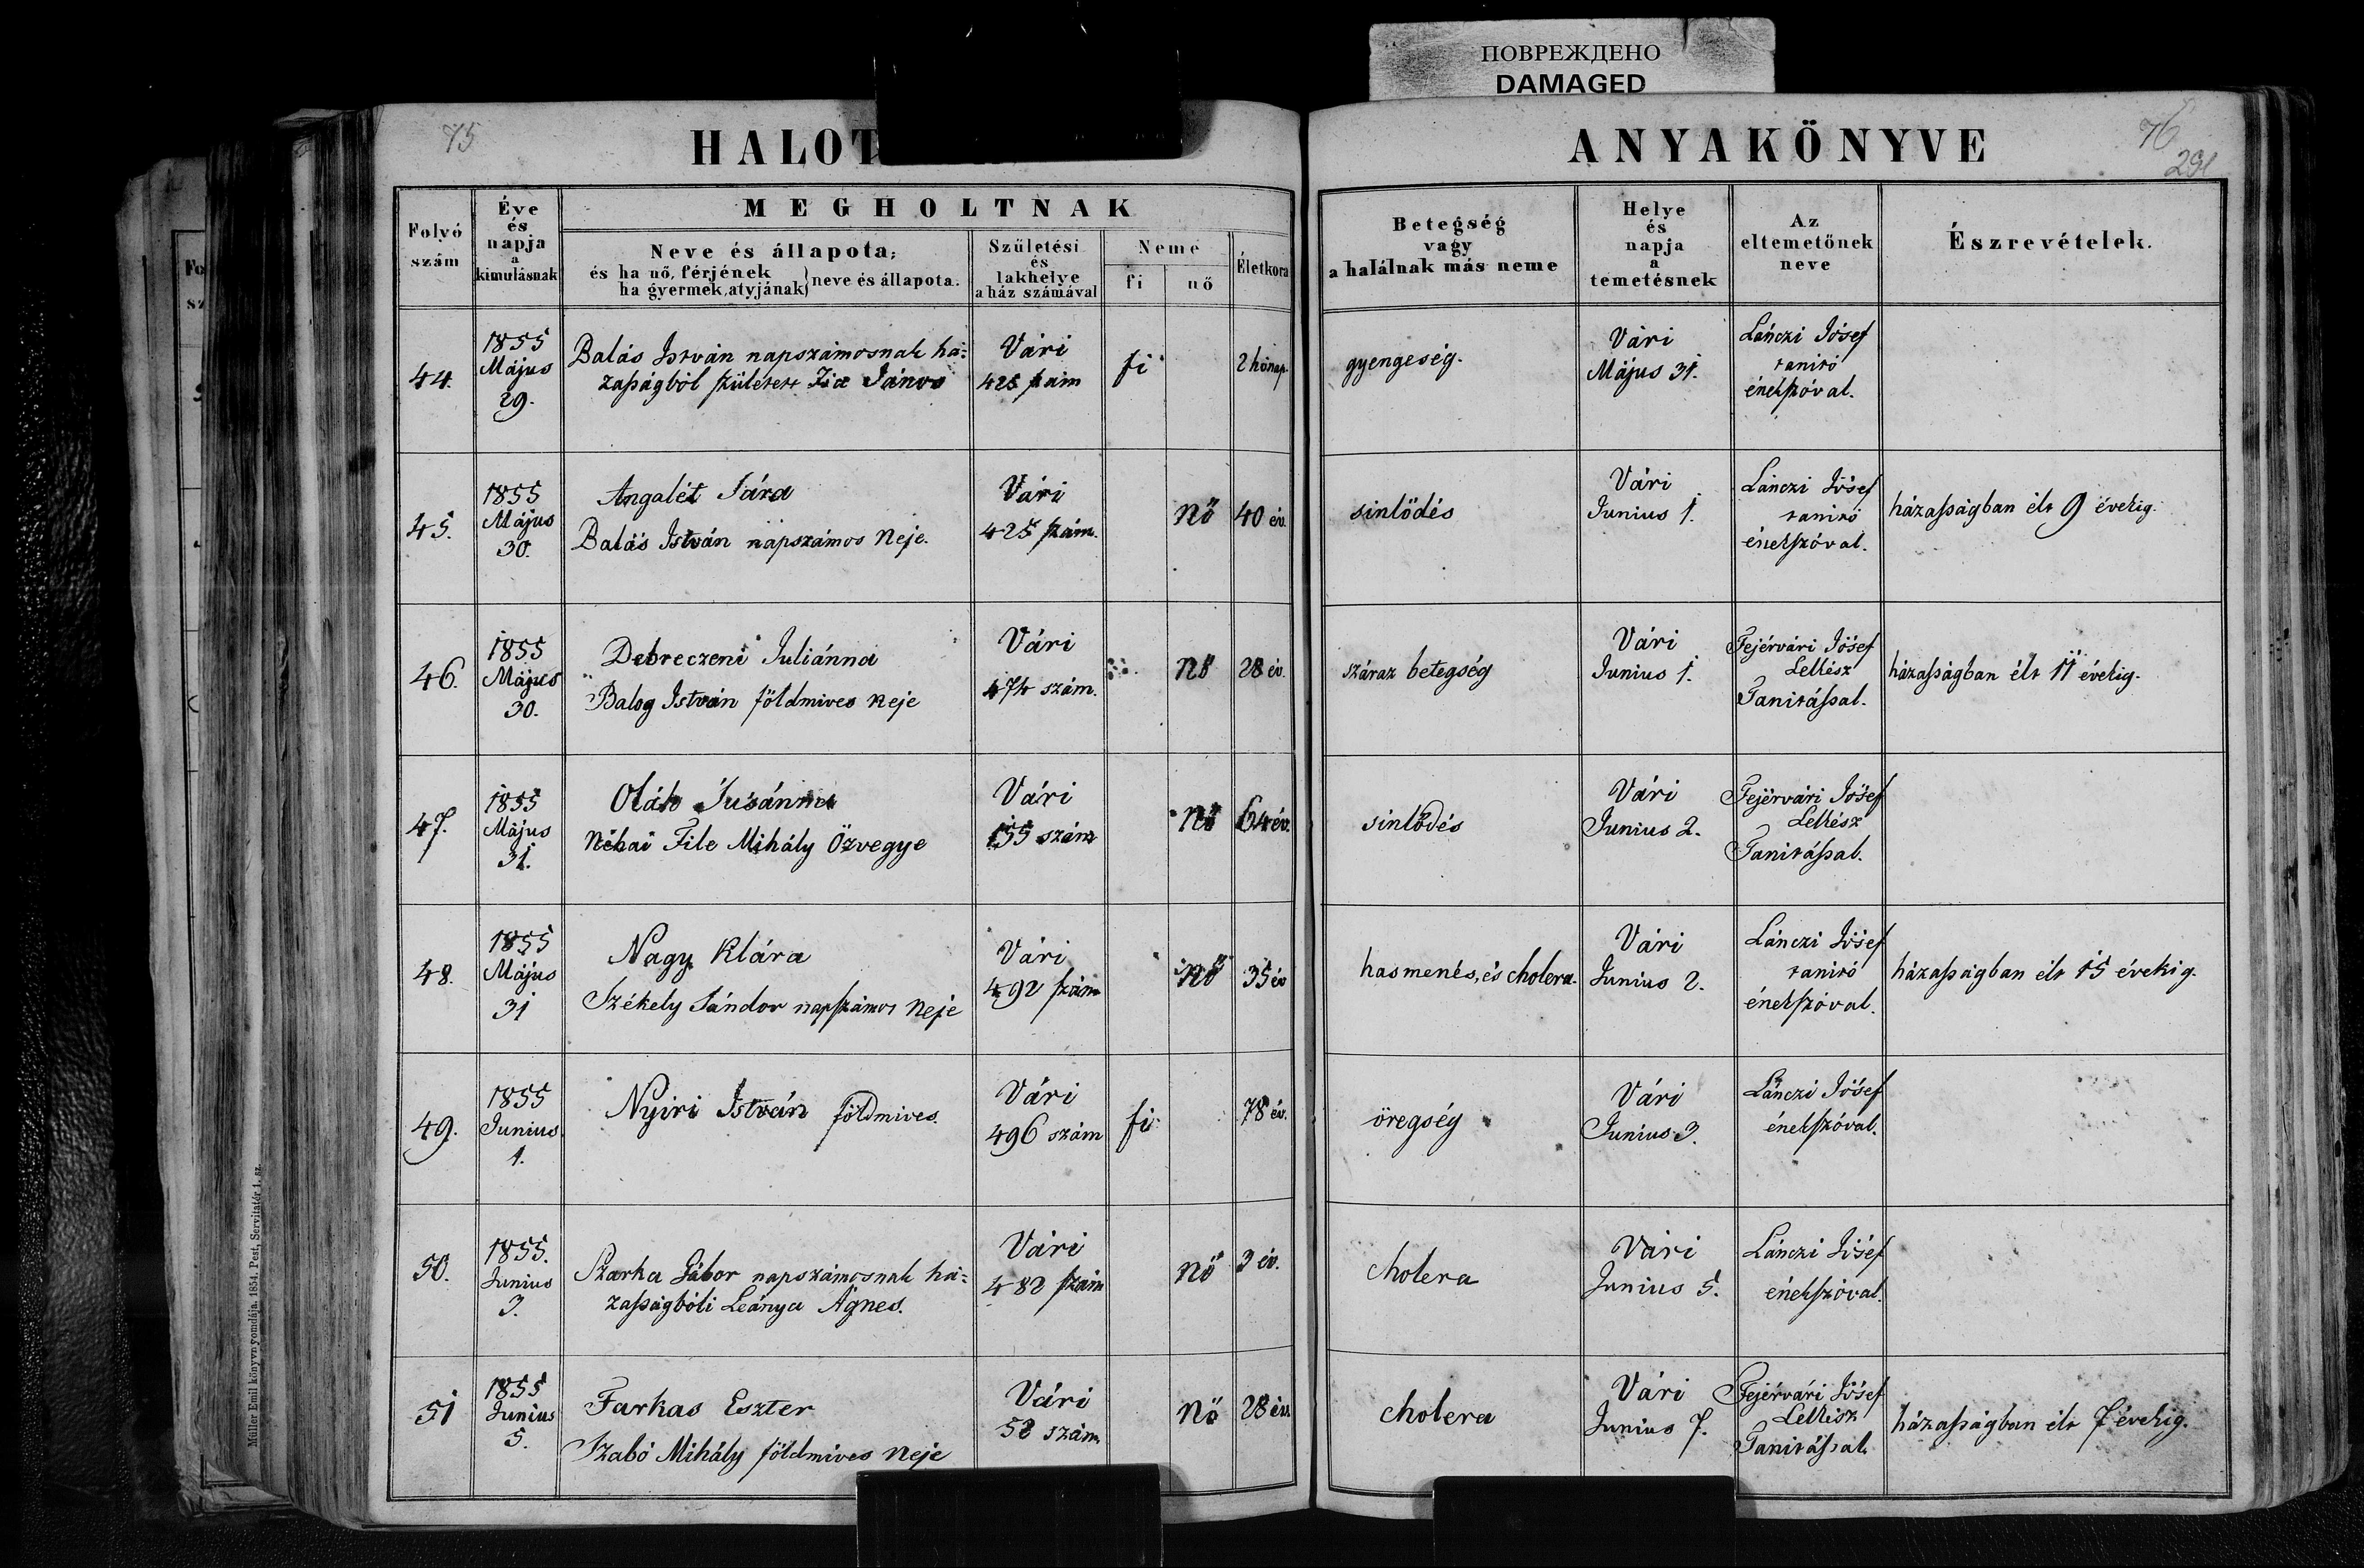 ПОВРЕЖДЕНО
DAMAGED
75
HALOT
Folyó
szám
Éve
és
napja
a
kimulásnak
MEGHOLTNAK
Neve és állapota;
és ha nő, férjének
ha gyermek, atyjának} neve és állapota.
Születési
és
lakhelye
a ház számával
Neme
fi
nő
Életkora
44.
1855
Május
29.
Balás István napszámosnak há-
zasságból született Fia János
Vári
425 szám
fi
2 hónap.
45.
1855
Május
30.
Angalét Sára
Balás István napszámos Neje.
Vári
425 szám.
Nő
40 év.
46.
1855
Május
30.
Debreczeni Juliánna
Balog István földmives Neje
Vári
474 szám.
Nő
28 év.
47.
1855
Május
31.
Oláh Susánna
Néhai File Mihály Özvegye
Vári
155 szám
Nő
64 év.
48.
1855
Május
31
Nagy Klára
Székely Sándor napszámos Neje
Vári
492 szám
Nő
35 év
49.
1855
Junius
1.
Nyiri István földmives.
Vári
496 szám
fi
78 év.
50.
1855.
Junius
3.
Szarka Gábor napszámosnak há-
zasságbóli Leánya Ágnes.
Vári
482 szám
Nő
3 év.
51
1855
Junius
5.
Farkas Eszter
Szabó Mihály földmives Neje
Vári
58 szám.
Nő
28 év.
Müller Emil könyvnyomdája. 1854. Pest, Servitatér 1. sz.
76
291
ANYAKÖNYVE
Betegség
vagy
a halálnak más neme
Helye
és
napja
a
temetésnek
Az
eltemetőnek
neve
Észrevételek.
gyengeség.
Vári
Május 31.
Lánczi Jósef
tanitó
énekszóval.
sinlődés
Vári
Junius 1.
Lánczi Jósef
tanitó
énekszóval.
házasságban élt 9 évekig.
száraz betegség
Vári
Junius 1.
Fejérvári Jósef
Lelkész
Tanitással.
házasságban élt 11 évekig.
sinlődés
Vári
Junius 2.
Fejérvári Jósef
Lelkész
Tanitással.
hasmenés, és cholera.
Vári
Junius 2.
Lánczi Jósef
tanitó
énekszóval.
házasságban élt 15 évekig.
öregség
Vári
Junius 3.
Lánczi Jósef
énekszóval.
cholera
Vári
Junius 5.
Lánczi Jósef
énekszóval.
cholera
Vári
Junius 7.
Fejérvári Jósef
Lelkész
Tanitással.
házasságban élt 7 évekig.